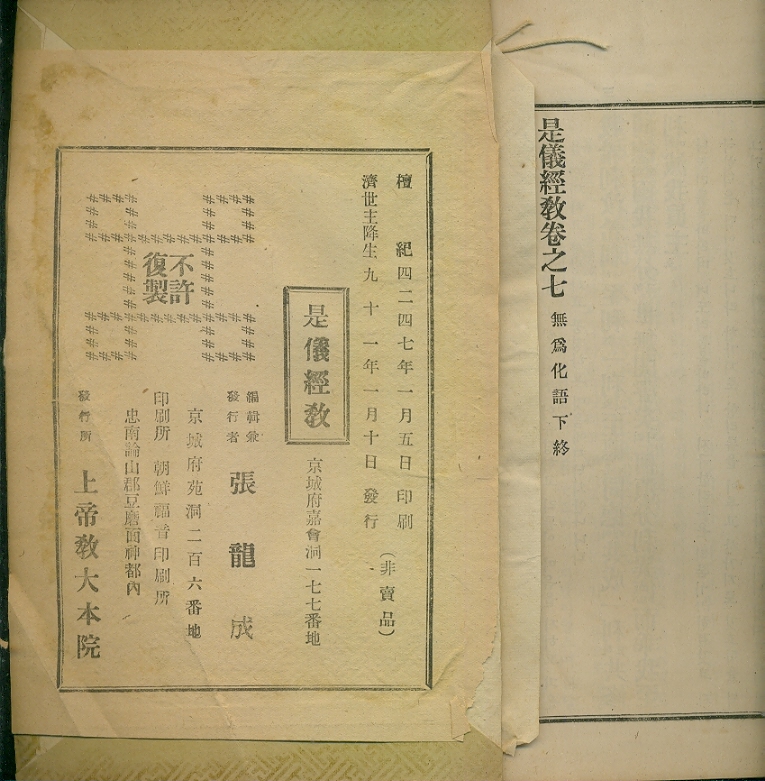 是儀經敎卷之七 無爲化語下終
檀紀四二四七年一月五日印刷
濟世主降生九十一年一月十日發行
(非賣品)
是儀經敎
京城府嘉會洞一七七番地
編輯兼
發行者
張龍成
京城府苑洞二百六番地
印刷所 朝鮮福音印刷所
忠南論山郡豆磨面神都內
發行所 上帝敎大本院
不許
復製